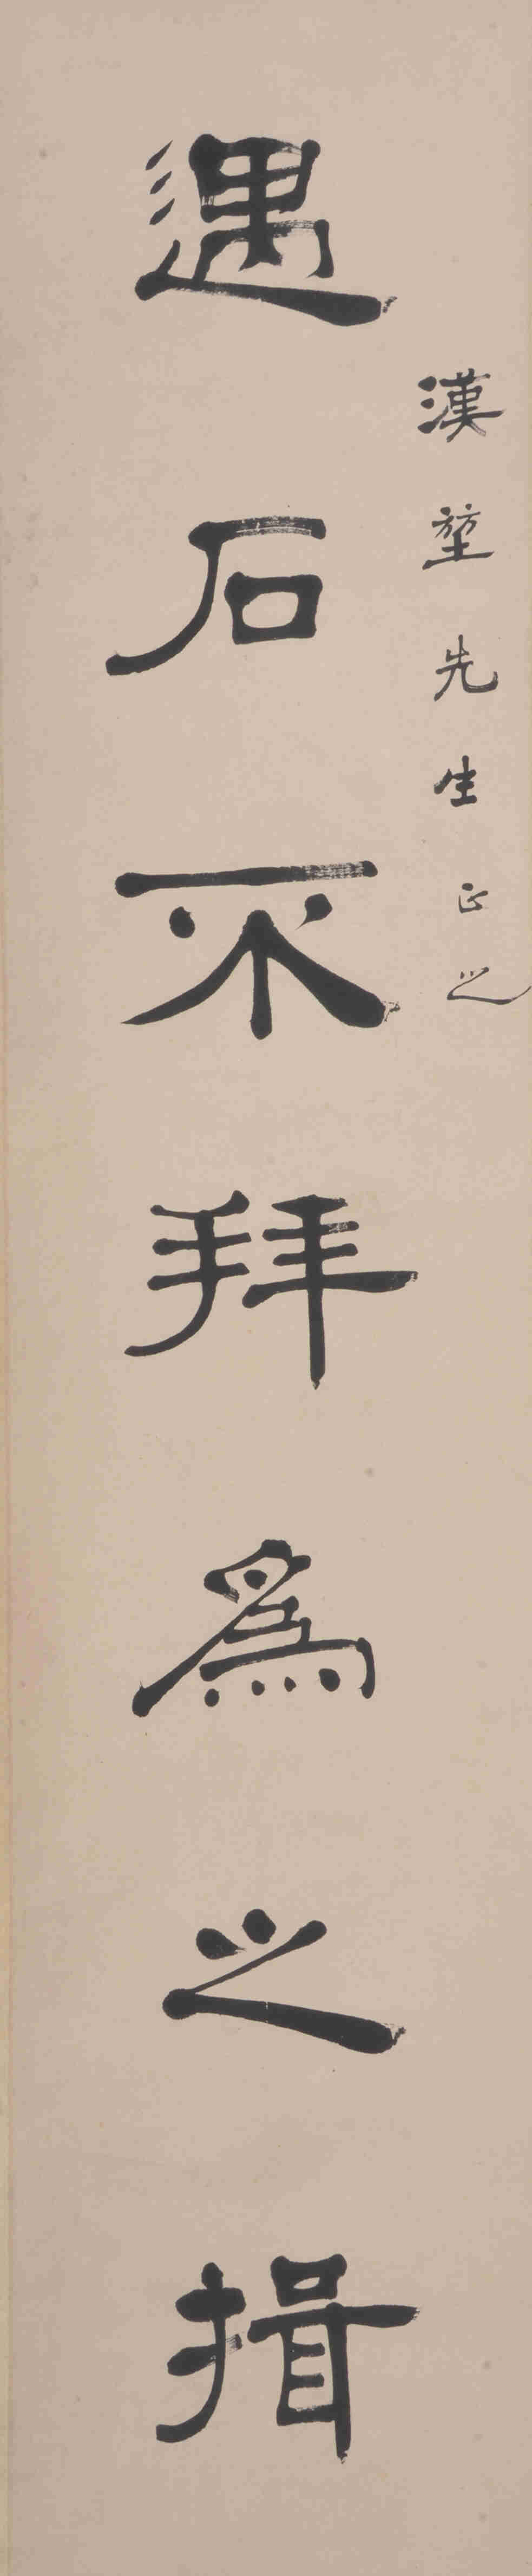 漢堃先生正之
遇石不拜為之揖